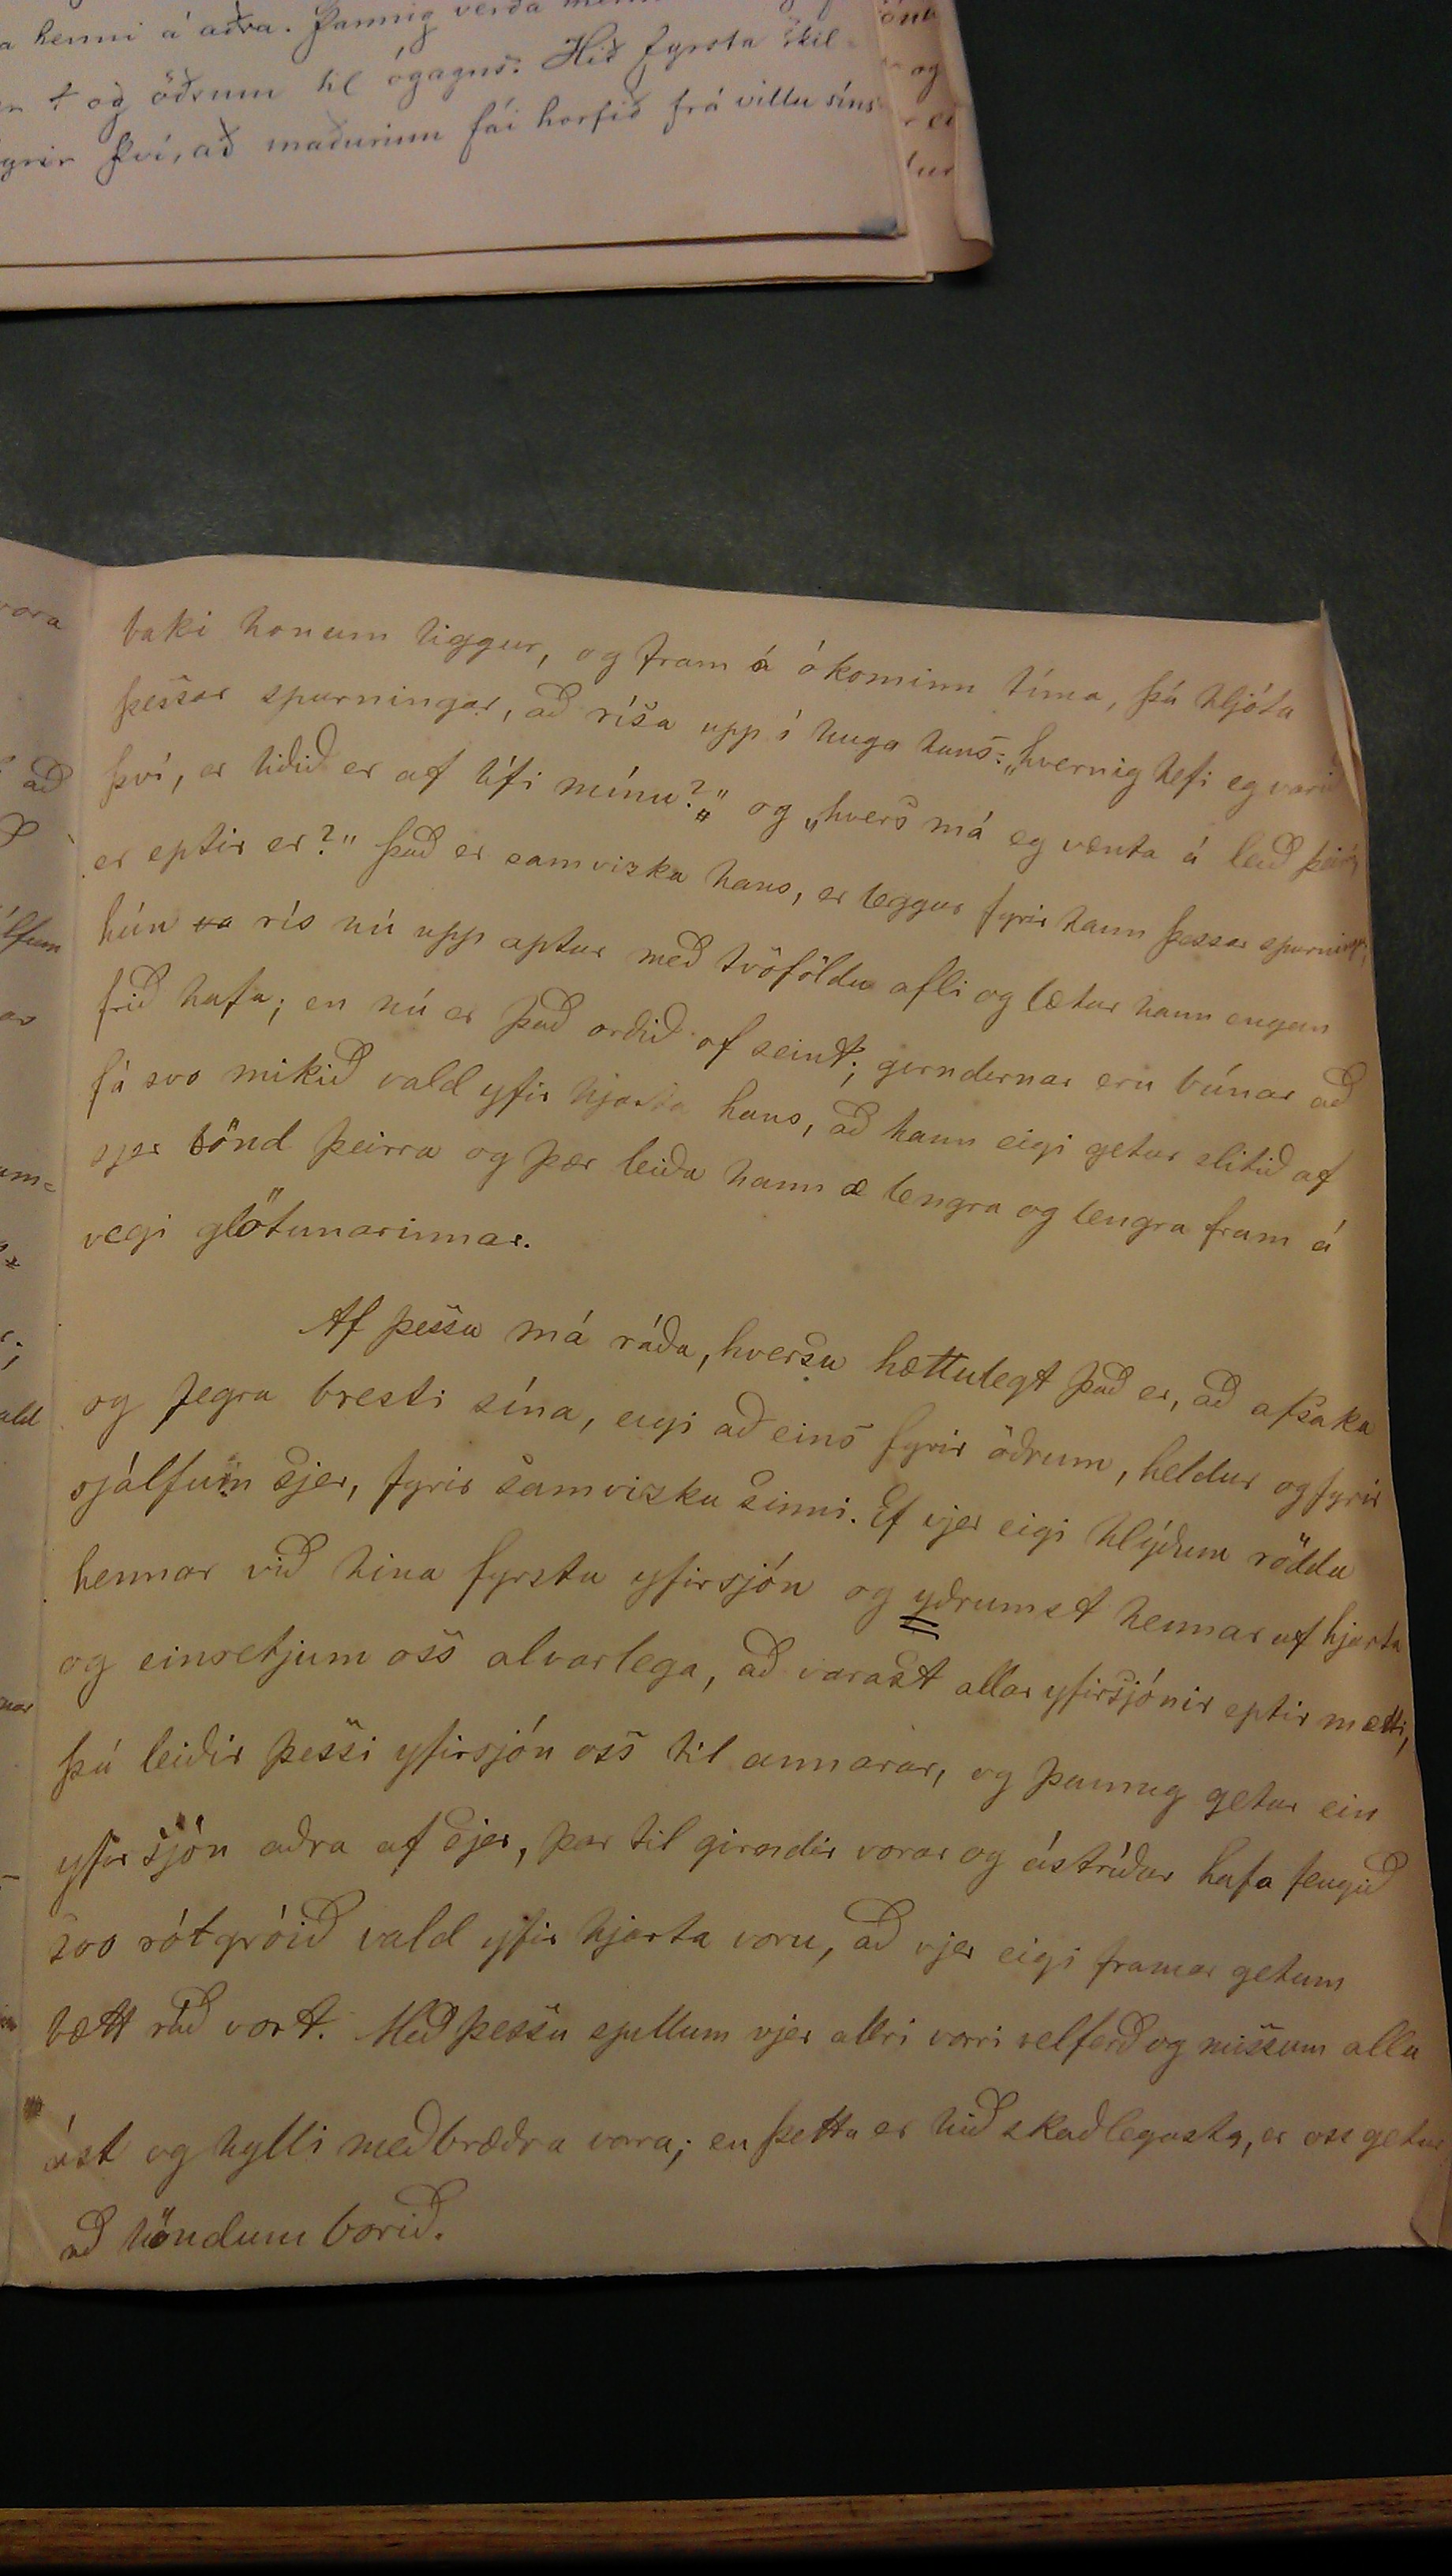 henni á aðra. Þannig verða
og öðrum til ógagns. Hið fyrsta skil-
fyrir því, að maðurinn fái horfið frá villu síns
og
vora
að
baki honum liggur, og fram á ókominn tíma, þá hljóta
þessar spurningar, að rísa upp í huga hans: „hvernig hefi eg varið
því, er liðið er af lífi mínu?“ og „hvers má eg vænta á leið þeirri,
er eptir er?“ Það er samvizka hans, er leggur fyrir hann þessar spurningar,
hún rís nú upp aptur með tvöföldu afli og lætur hann engan
frið hafa; en nú er það orðið of seint; girndirnar eru búnar að
fá svo mikið vald yfir hjarta hans, að hann eigi getur slitið af
sjer bönd þeirra og þær leiða hann æ lengra og lengra fram á
vegi glötunarinnar.
Af þessu má ráða, hversu hættulegt það er, að afsaka
og fegra bresti sína, eigi að eins fyrir öðrum, heldur og fyrir
sjálfum sjer, fyrir samvizku sinni. Ef vjer eigi hlýðum röddu
hennar við hina fyrstu yfirsjón og yðrumst hennar af hjarta
og einsetjum oss alvarlega, að varast allar yfirsjónir eptir mætti,
þá leiðir þessi yfirsjón oss til annarar, og þannig getur ein
yfirsjón aðra af sjer, þar til girndir vorar og ástríður hafa fengið
svo rótgróið vald yfir hjarta voru, að vjer eigi framar getum
bætt ráð vort. Með þessu spillum vjer allri vorri velferð og missum alla
ást og hylli meðbræðra vorra; en þetta er hið skaðlegasta, er oss getur
að höndum borið.